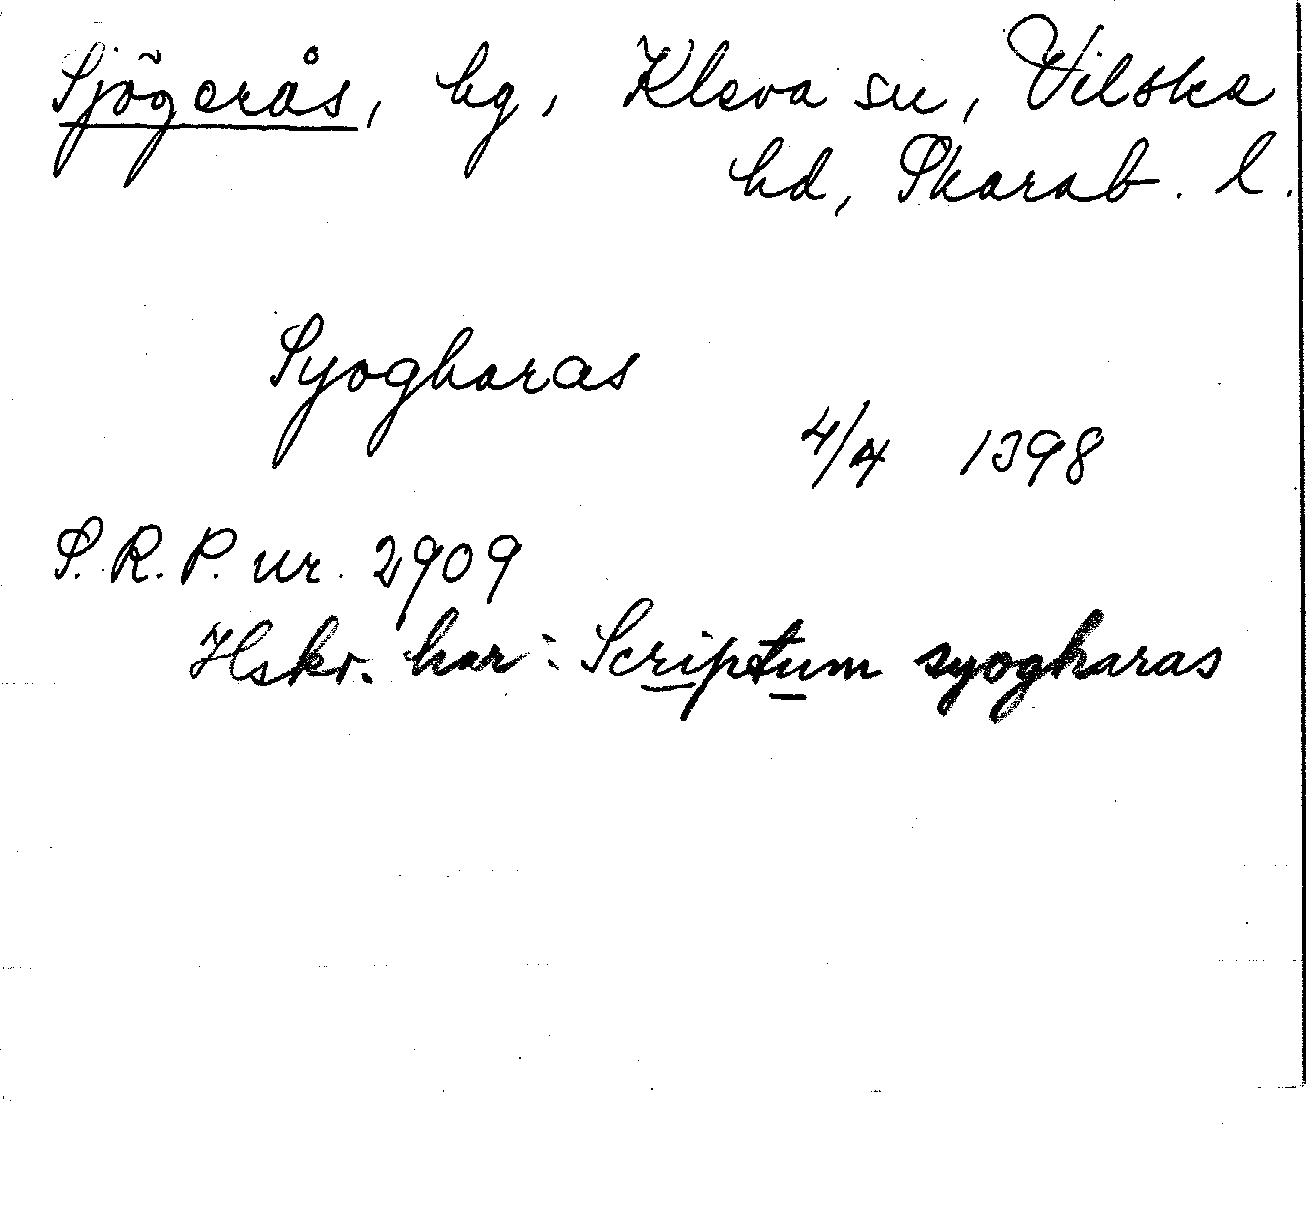 Sjögerås, hg, Kleva sn, Vilske
hd, Skarab. l.
Syogharas
4/4 1398
S. R. P. nr. 2909
Hskr. har: Scriptum syogharas